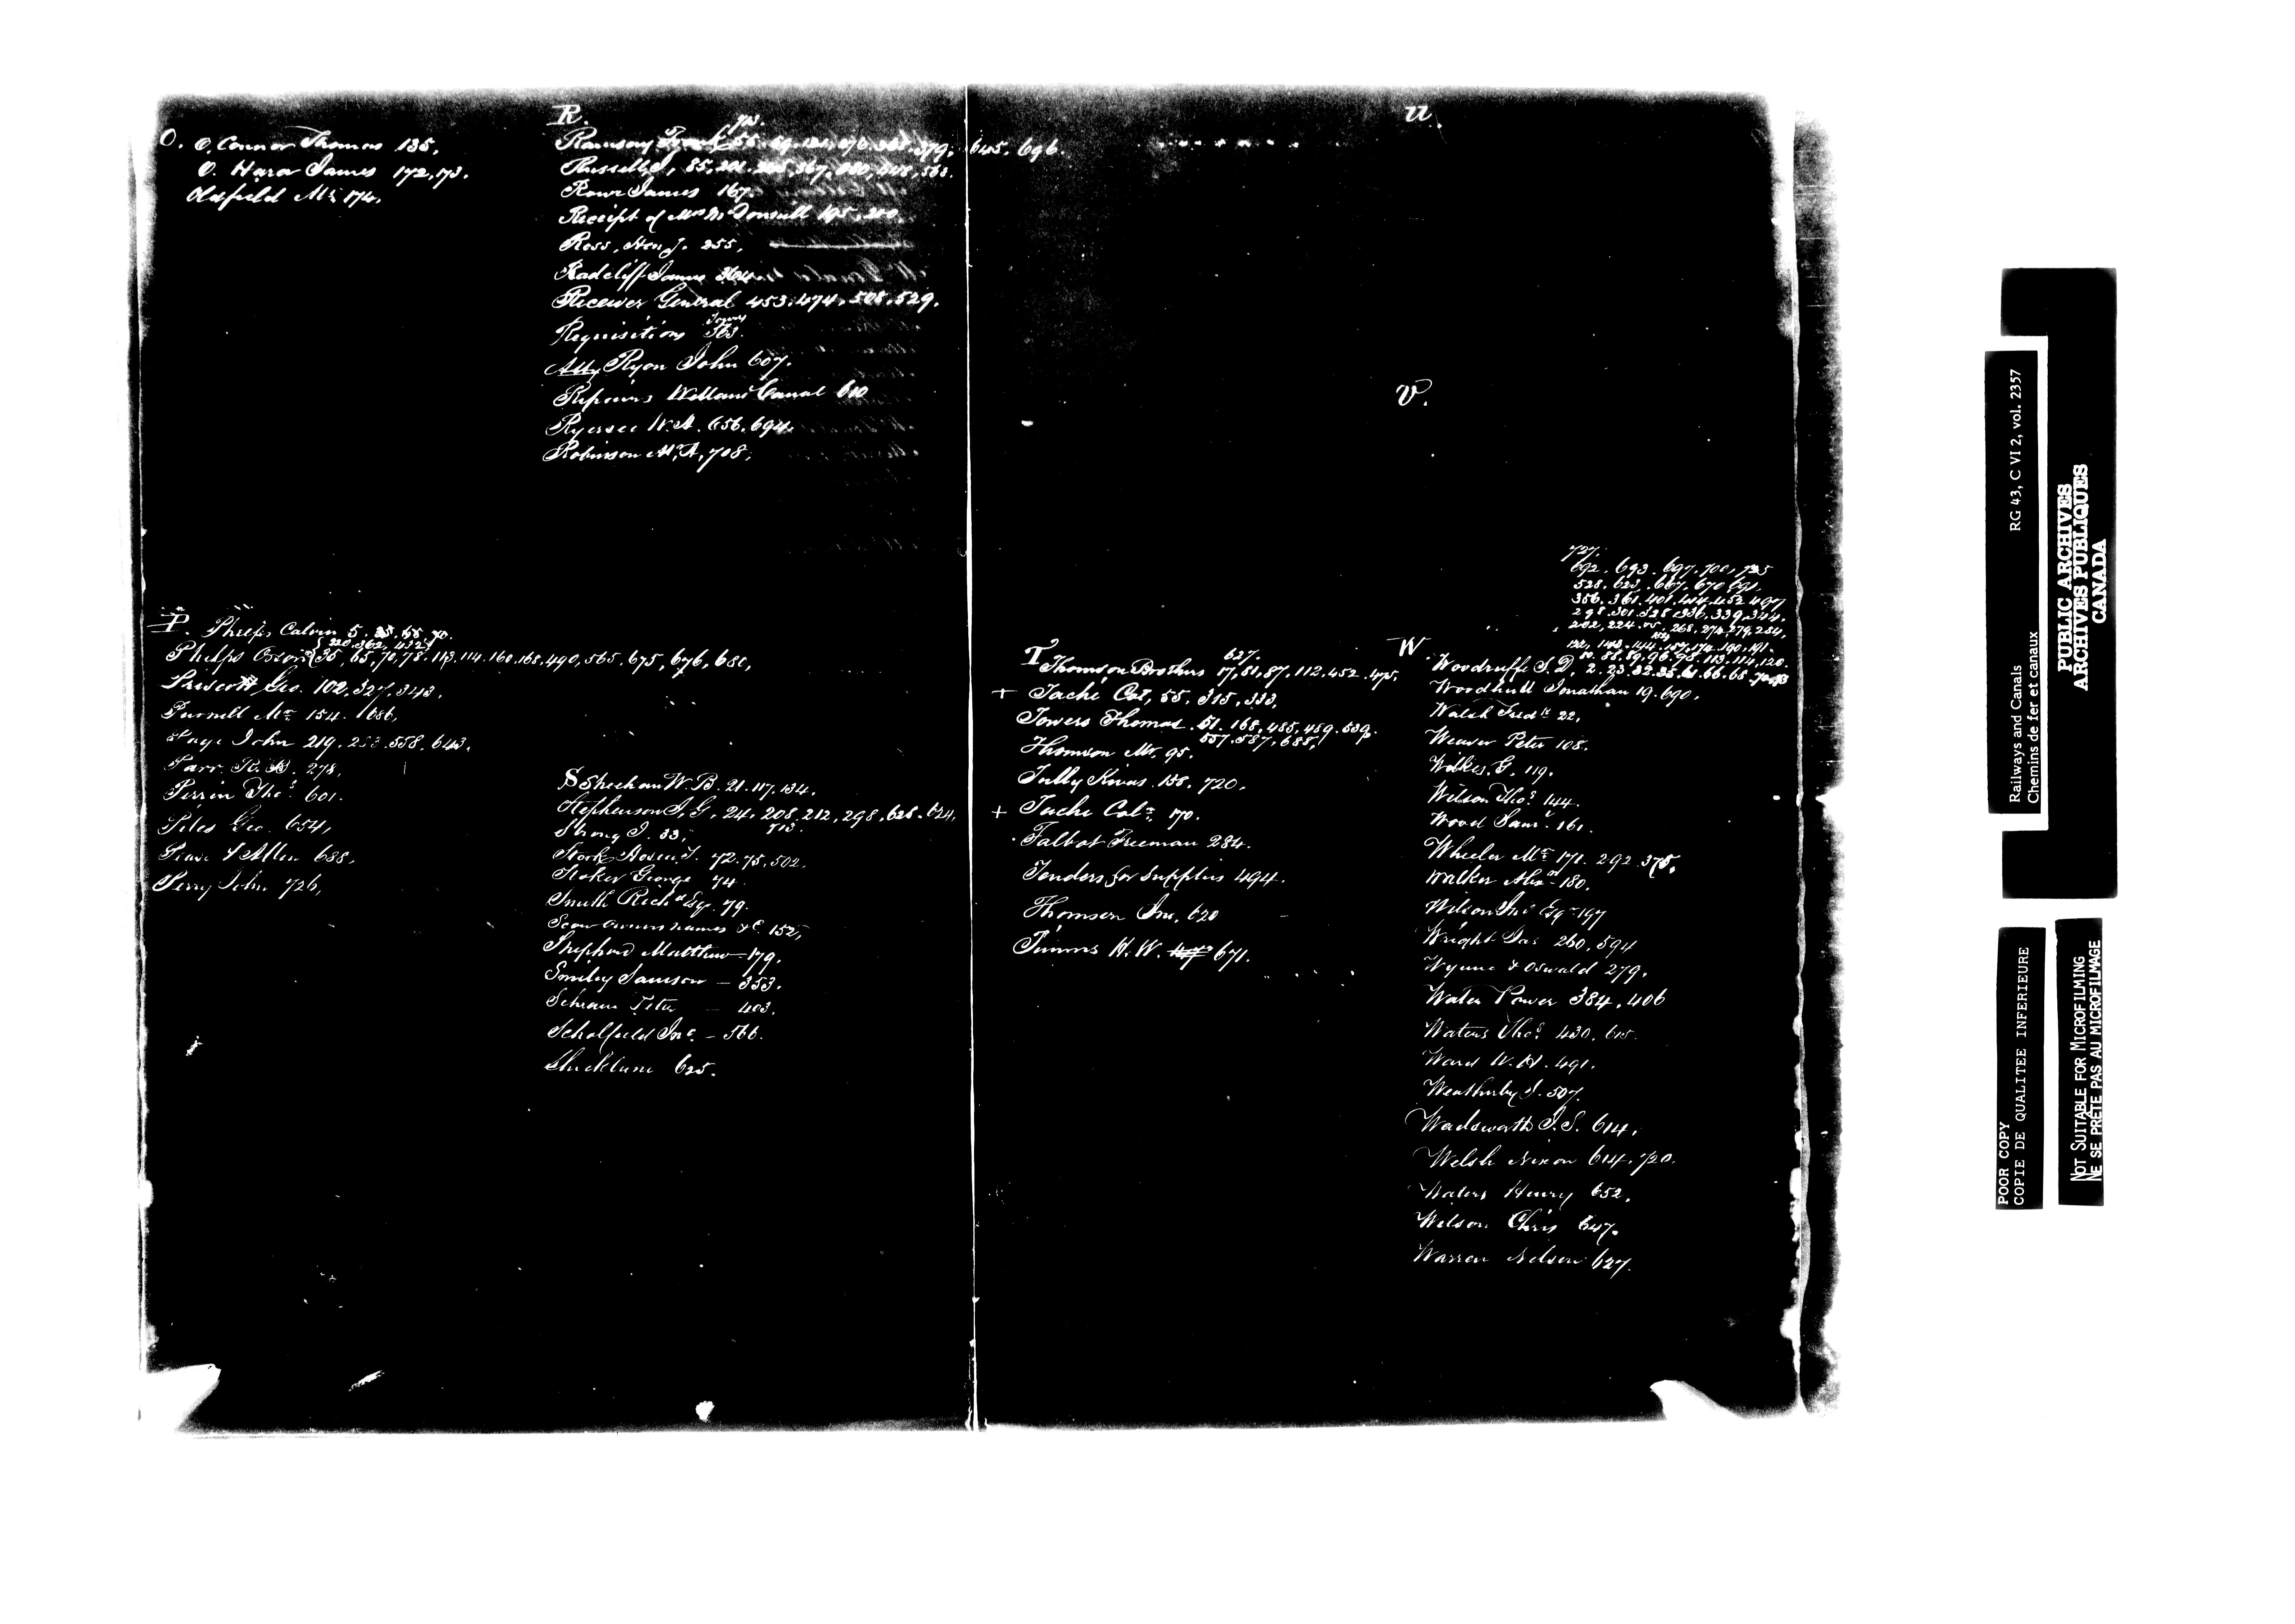 O. O. Connor Thomas 135,
O. Hara James 172, 173.
Oldfield Mr 174.
P. Phelps Calvin 5. 35, 65, 70.
220. 362, 432
Phelps Orson 35, 65, 70, 78. 113. 114. 160. 168. 490, 565. 675, 676, 680,
Prescott Geo. 102, 327, 343.
Purnell Mr 154. 686,
Page John 219. 558. 643.
Parr. R. 278,
Perrin Thos 601.
Geo. 654,
& Allen 688,
Perry John 726,
R.
713.
Ramsay 379, 645. 696.
Russell J, 85, 201. 568.
Rowe James 167.
Receipt of Mrs McDonell 195, 200.
Ross, Hon J. 255,
Radcliff James
Receiver General 453. 474. 508. 529.
Requisitions 563.
Ryon John 607.
Repairs Welland Canal 610
W. A. 656. 694.
Robinson Mr A, 708,
S Sheehan W. B. 21. 117. 134.
Stephenson J. G. 24. 208. 212, 298, 628. 624,
713.
Strong J. 33,
72. 75, 502,
Stoker George 74
Smith Richd Esqr 79.
Scow Owners names &c. 152,
Shephard Matthew - 179.
Smiley Samson — 353.
Schram Peter — 403.
Scholfield Jno. — 566.
Shickluna 625.
T
627.
Thomson Brothers 17, 81, 87. 112. 452. 475.
+ Taché Col, 55. 315. 333.
Towers Thomas. 51. 168, 485, 489. 539.
557. 587, 688,
Thomson Mr. 95.
Tully Kivas. 158, 720.
+ Tache Col. 170.
Talbot Freeman 284.
Tenders for Supplies 494.
Thomson Jno. 620
Timms H. W. 671.
U.
V.
727.
692. 693. 697. 700, 725
528. 623. 667, 670 691.
356. 361. 401. 414. 452 497
298. 301. 328. 336. 339. 344.
202, 224. 268, 274, 279, 284,
122, 143. 144. 157, 174. 190, 191.
50. 58. 89. 96. 98. 113. 114, 120.
W Woodruffe S. D. 2. 23. 32. 35. 61. 66. 68.
Woodhull Jonathan 19. 690.
Walsh Fredk 22.
Weaver Peter 108.
Wilkes, G. 119.
Wilson Thos 144.
Wood Saml. 161.
Wheeler Mr 171. 292. 375.
Walker Alexr 180.
Wilson Jno Esqr 197
Wright Jas 260, 594
Wynne & Oswald 279.
Water Power 384, 406
Waters Thos 430, 615.
Ward W. H. 491.
Weatherby J. 507.
Wadsworth J. S. 614.
Welsh Nixon 614. 720.
Waters Henry 652.
Wilson Chris 647.
Warren Nelson 627.
Railways and Canals RG 43, C VI 2, vol. 2357
Chemins de fer et canaux
PUBLIC ARCHIVES
ARCHIVES PUBLIQUES
CANADA
POOR COPY
COPIE DE QUALITEE INFERIEURE
NOT SUITABLE FOR MICROFILMING
NE SE PRÊTE PAS AU MICROFILMAGE